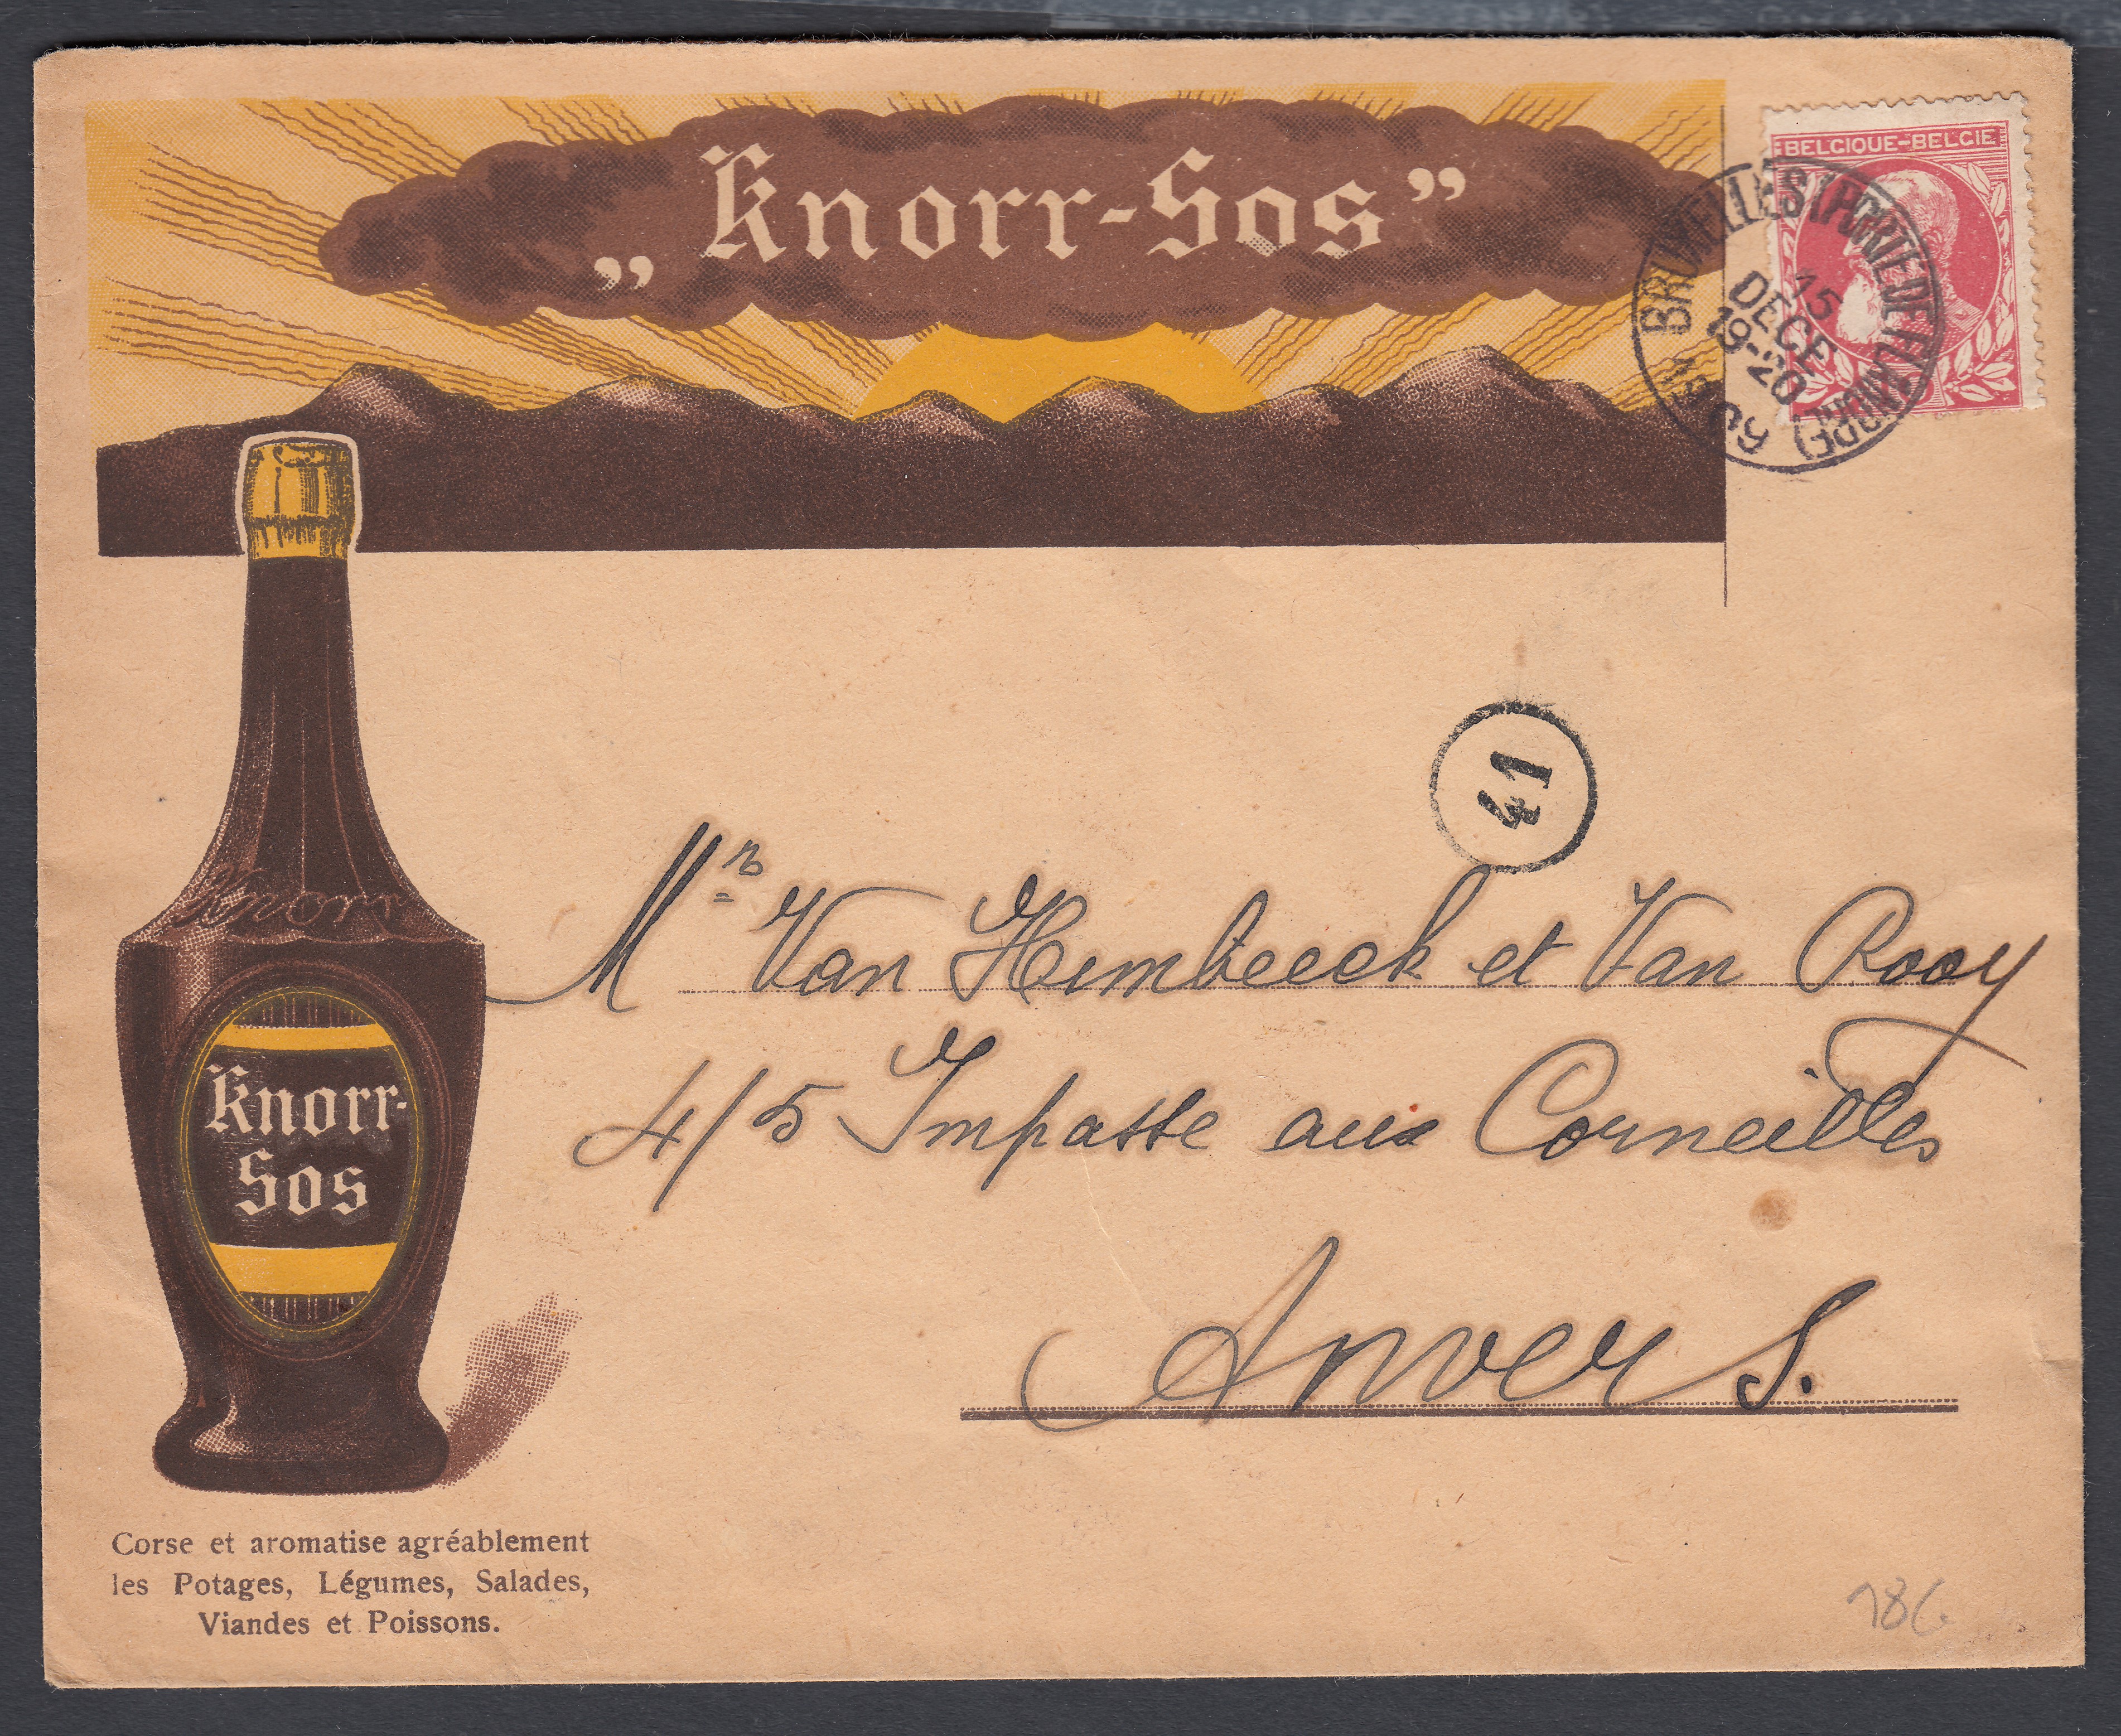 „Knorr-Sos”
BELGIQUE-BELGIE
BRUXELLES (PORTE DE FLANDRE)
15
DECE
19-20
1909
41
Knorr
Mr Van Hembeeck et Van Rooy
Knorr-
Sos
4/5 Impasse aux Corneilles
Anvers.
Corse et aromatise agréablement
les Potages, Légumes, Salades,
Viandes et Poissons.